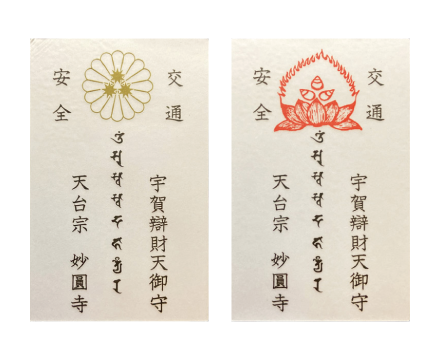 交通
安全
宇賀辯財天御守
天台宗 妙圓寺
交通
安全
宇賀辯財天御守
天台宗 妙圓寺